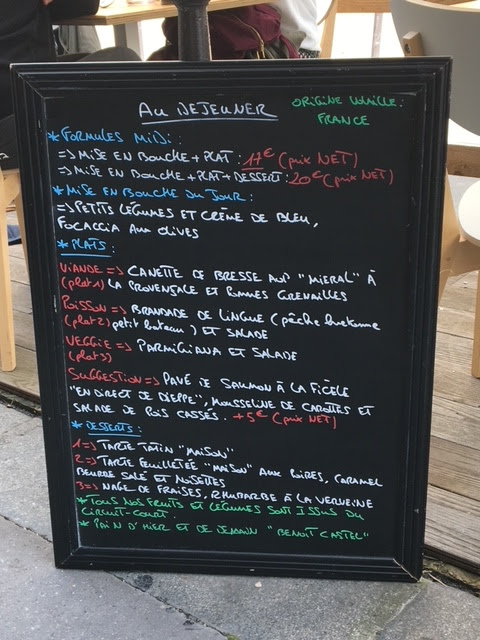 Au DEJEUNER
ORIGINE VOLAILLE:
FRANCE
*FORMULES MiDi:
=> MiSE EN BOUCHE + PLAT : 17€ (prix NET)
=> MiSE EN BOUCHE + PLAT + DESSERT: 20€ (prix NET)
*MiSE EN BOUCHE DU JOUR:
=> PETiTS LÉGUMES ET CRÈME DE BLEU,
FOCACCiA AUX OLiVES
*PLATS:
ViANDE => CANETTE DE BRESSE AOP "MiERAL" À
(plat 1) LA PROVENÇALE ET POMMES GRENAiLLES
POiSSON => BRANDADE DE LiNGUE (pêche bretonne
(plat 2) petit bateau) ET SALADE
VEGGiE => PARMiGiANA ET SALADE
(plat 3)
SUGGESTiON => PAVÉ DE SAUMON À LA FiCELE
"EN DiRECT DE DiEPPE", MOUSSELiNE DE CAROTTES ET
SALADE DE POiS CASSÉS. +5€ (prix NET)
*DESSERTS:
1=> TARTE TATiN "MAiSON"
2=> TARTE FEUiLLETÉE "MAiSON" AUX POiRES, CARAMEL
BEURRE SALÉ ET NOiSETTES
3=> NAGE DE FRAiSES, RHUBARBE À LA VERVEiNE
*TOUS NOS FRUiTS ET LÉGUMES SONT iSSUS DU
CiRCUiT-COURT.
*PAiN D'HiER ET DE DEMAiN "BENOiT CASTEL"